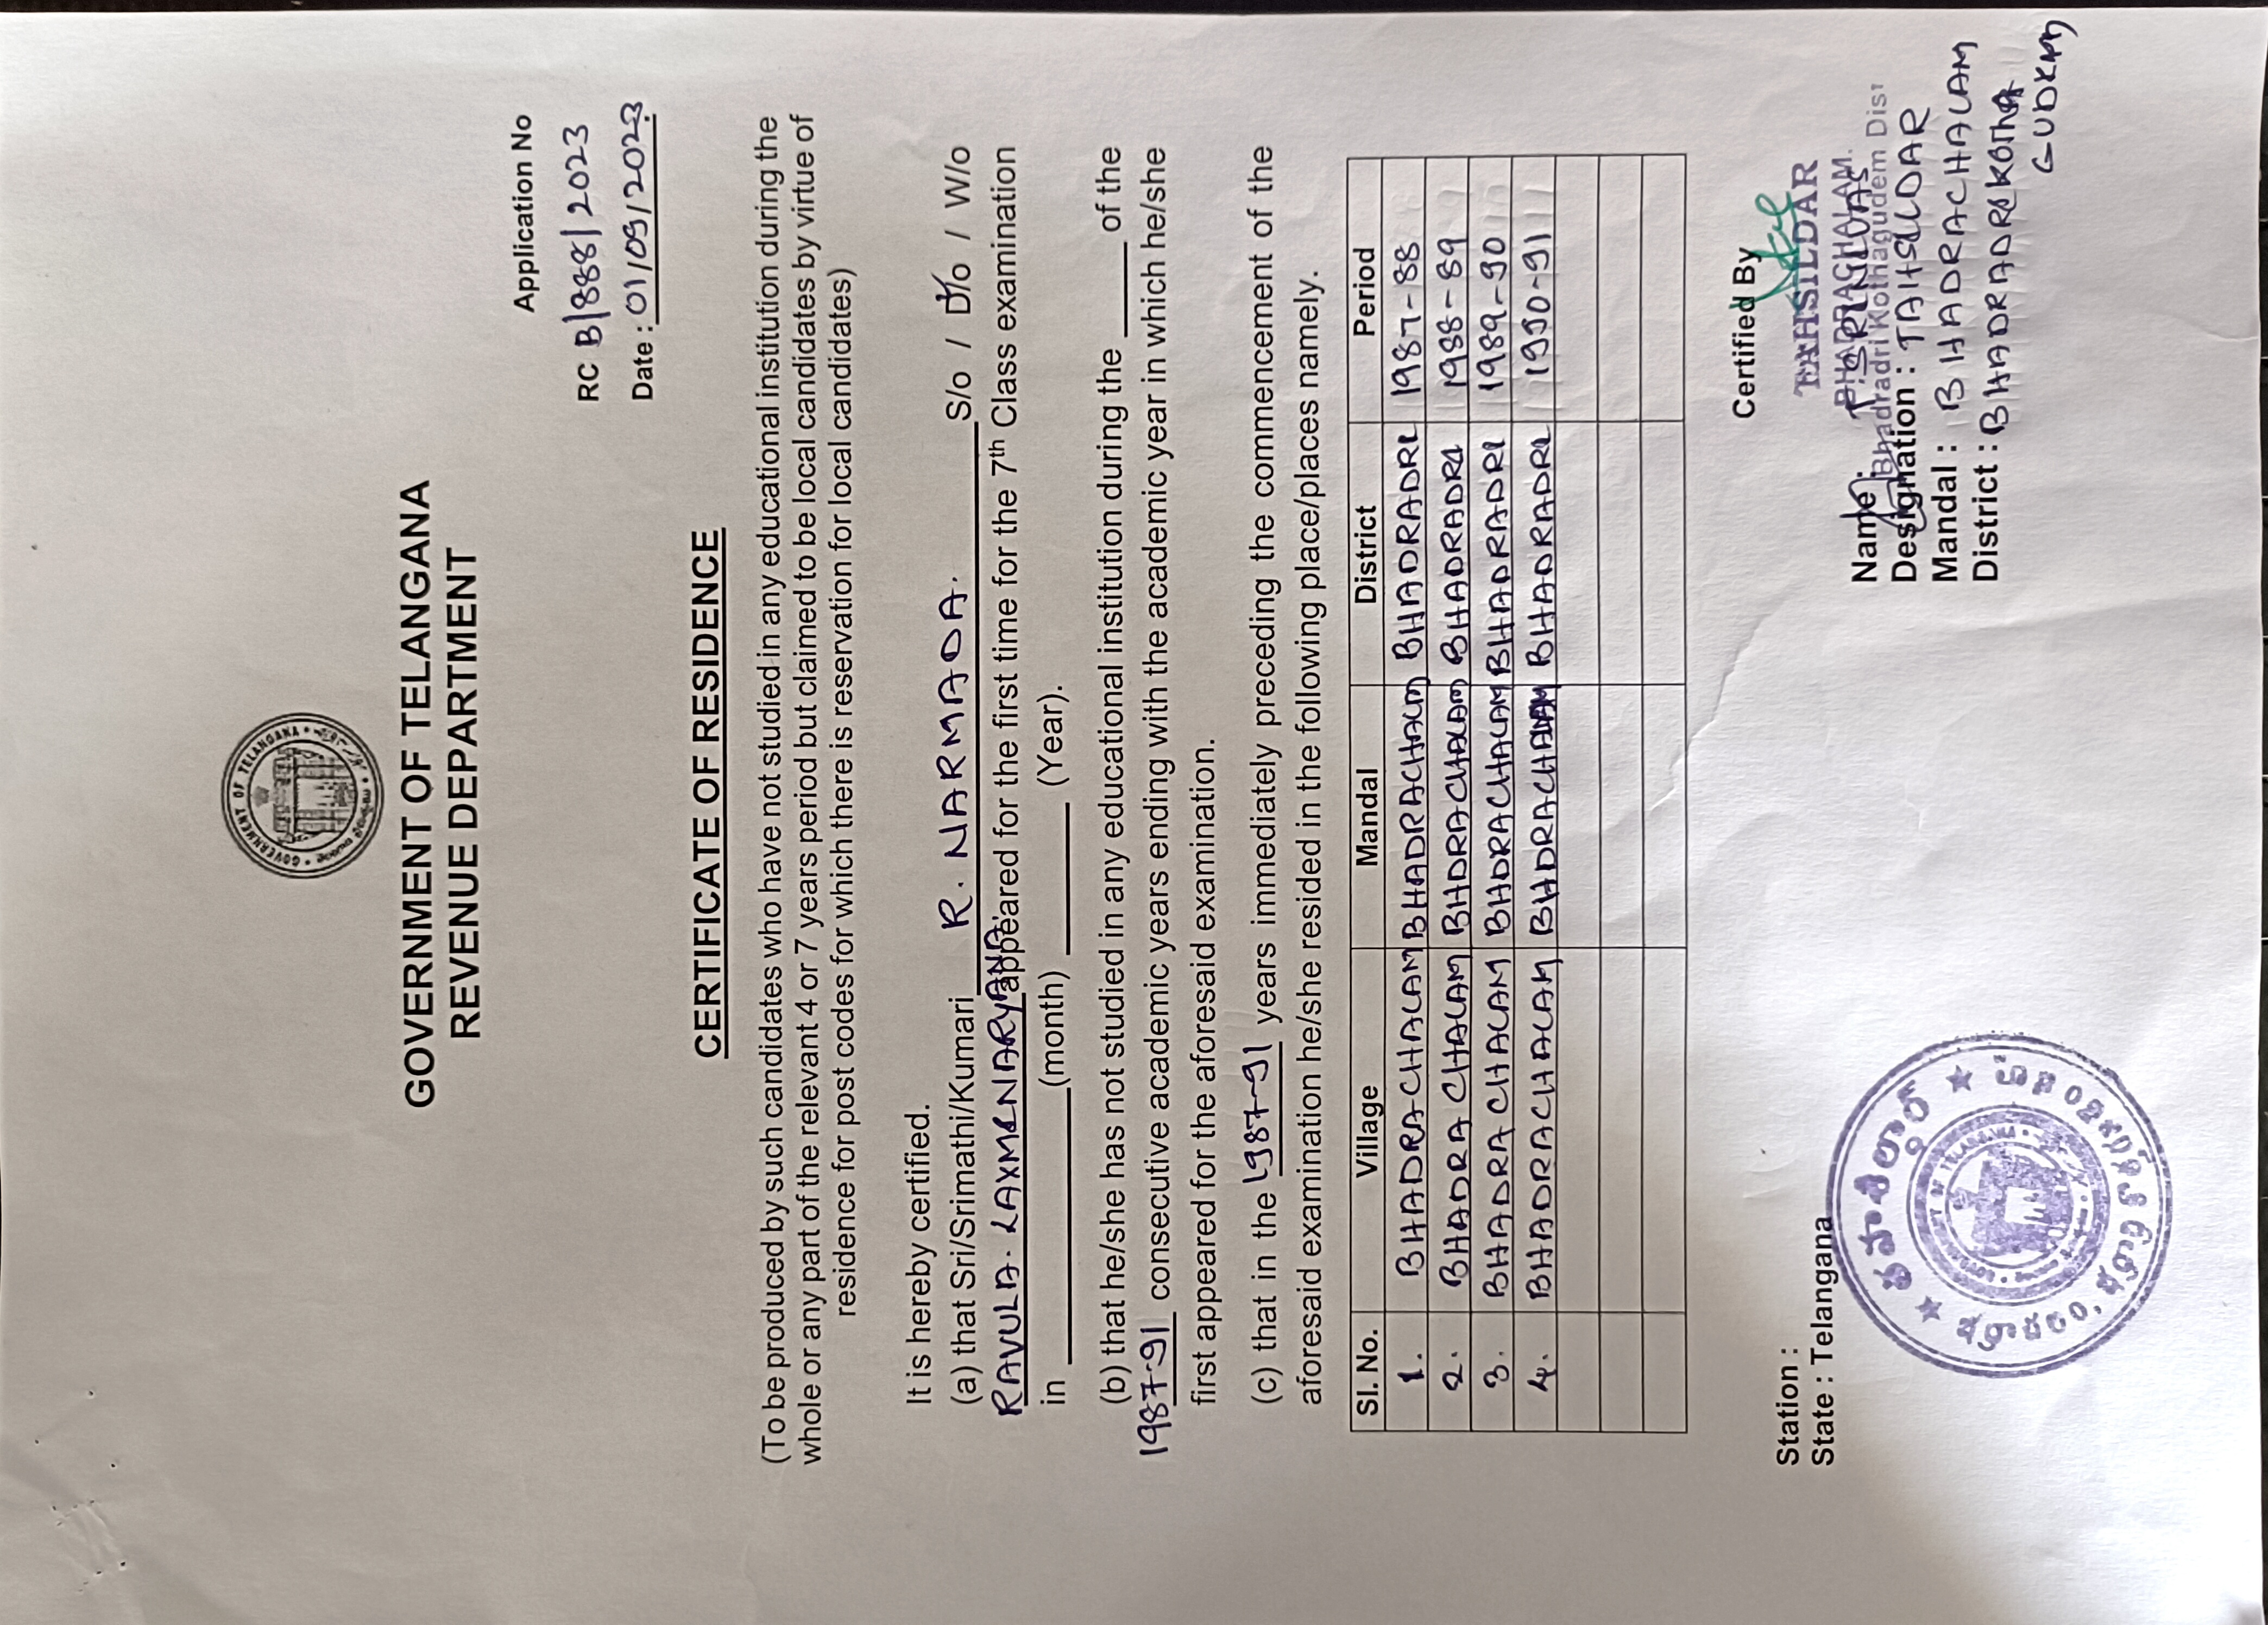 GOVERNMENT OF TELANGANA
GOVERNMENT OF TELANGANA
REVENUE DEPARTMENT
Application No
RC B/888/2023
Date : 01/09/2023
CERTIFICATE OF RESIDENCE
(To be produced by such candidates who have not studied in any educational institution during the
whole or any part of the relevant 4 or 7 years period but claimed to be local candidates by virtue of
residence for post codes for which there is reservation for local candidates)
It is hereby certified.
(a) that Sri/Srimathi/Kumari R. NARMADA. S/o / D/o / W/o
RAVULA. LAXMINARYANA. appeared for the first time for the 7th Class examination
in ____ (month) ____ (Year).
(b) that he/she has not studied in any educational institution during the ____ of the
1987-91 consecutive academic years ending with the academic year in which he/she
first appeared for the aforesaid examination.
(c) that in the 1987-91 years immediately preceding the commencement of the
aforesaid examination he/she resided in the following place/places namely.
Sl. No. Village Mandal District Period
1. BHADRACHALAM BHADRACHALM BHADRADRI 1987-88
2. BHADRA CHALAM BHDRACHALAM BHADRADRI 1988-89
3. BHADRA CHALAM BHDRACHALAM BHADRADRI 1989-90
4. BHADRACHALAM BHDRACHALAM BHADRADRI 1990-91
Certified By
Station :
State : Telangana
TAHSILDAR
BHADRACHALAM.
Name : T. SRINIVAS
Bhadradri Kothagudem Dist
Designation : TAHSILDAR
Mandal : BHADRACHALAM
District : BHADRADRI KOTHA
GUDEM
తహశీల్దార్
భద్రాచలం,
GOVERNMENT OF TELANGANA